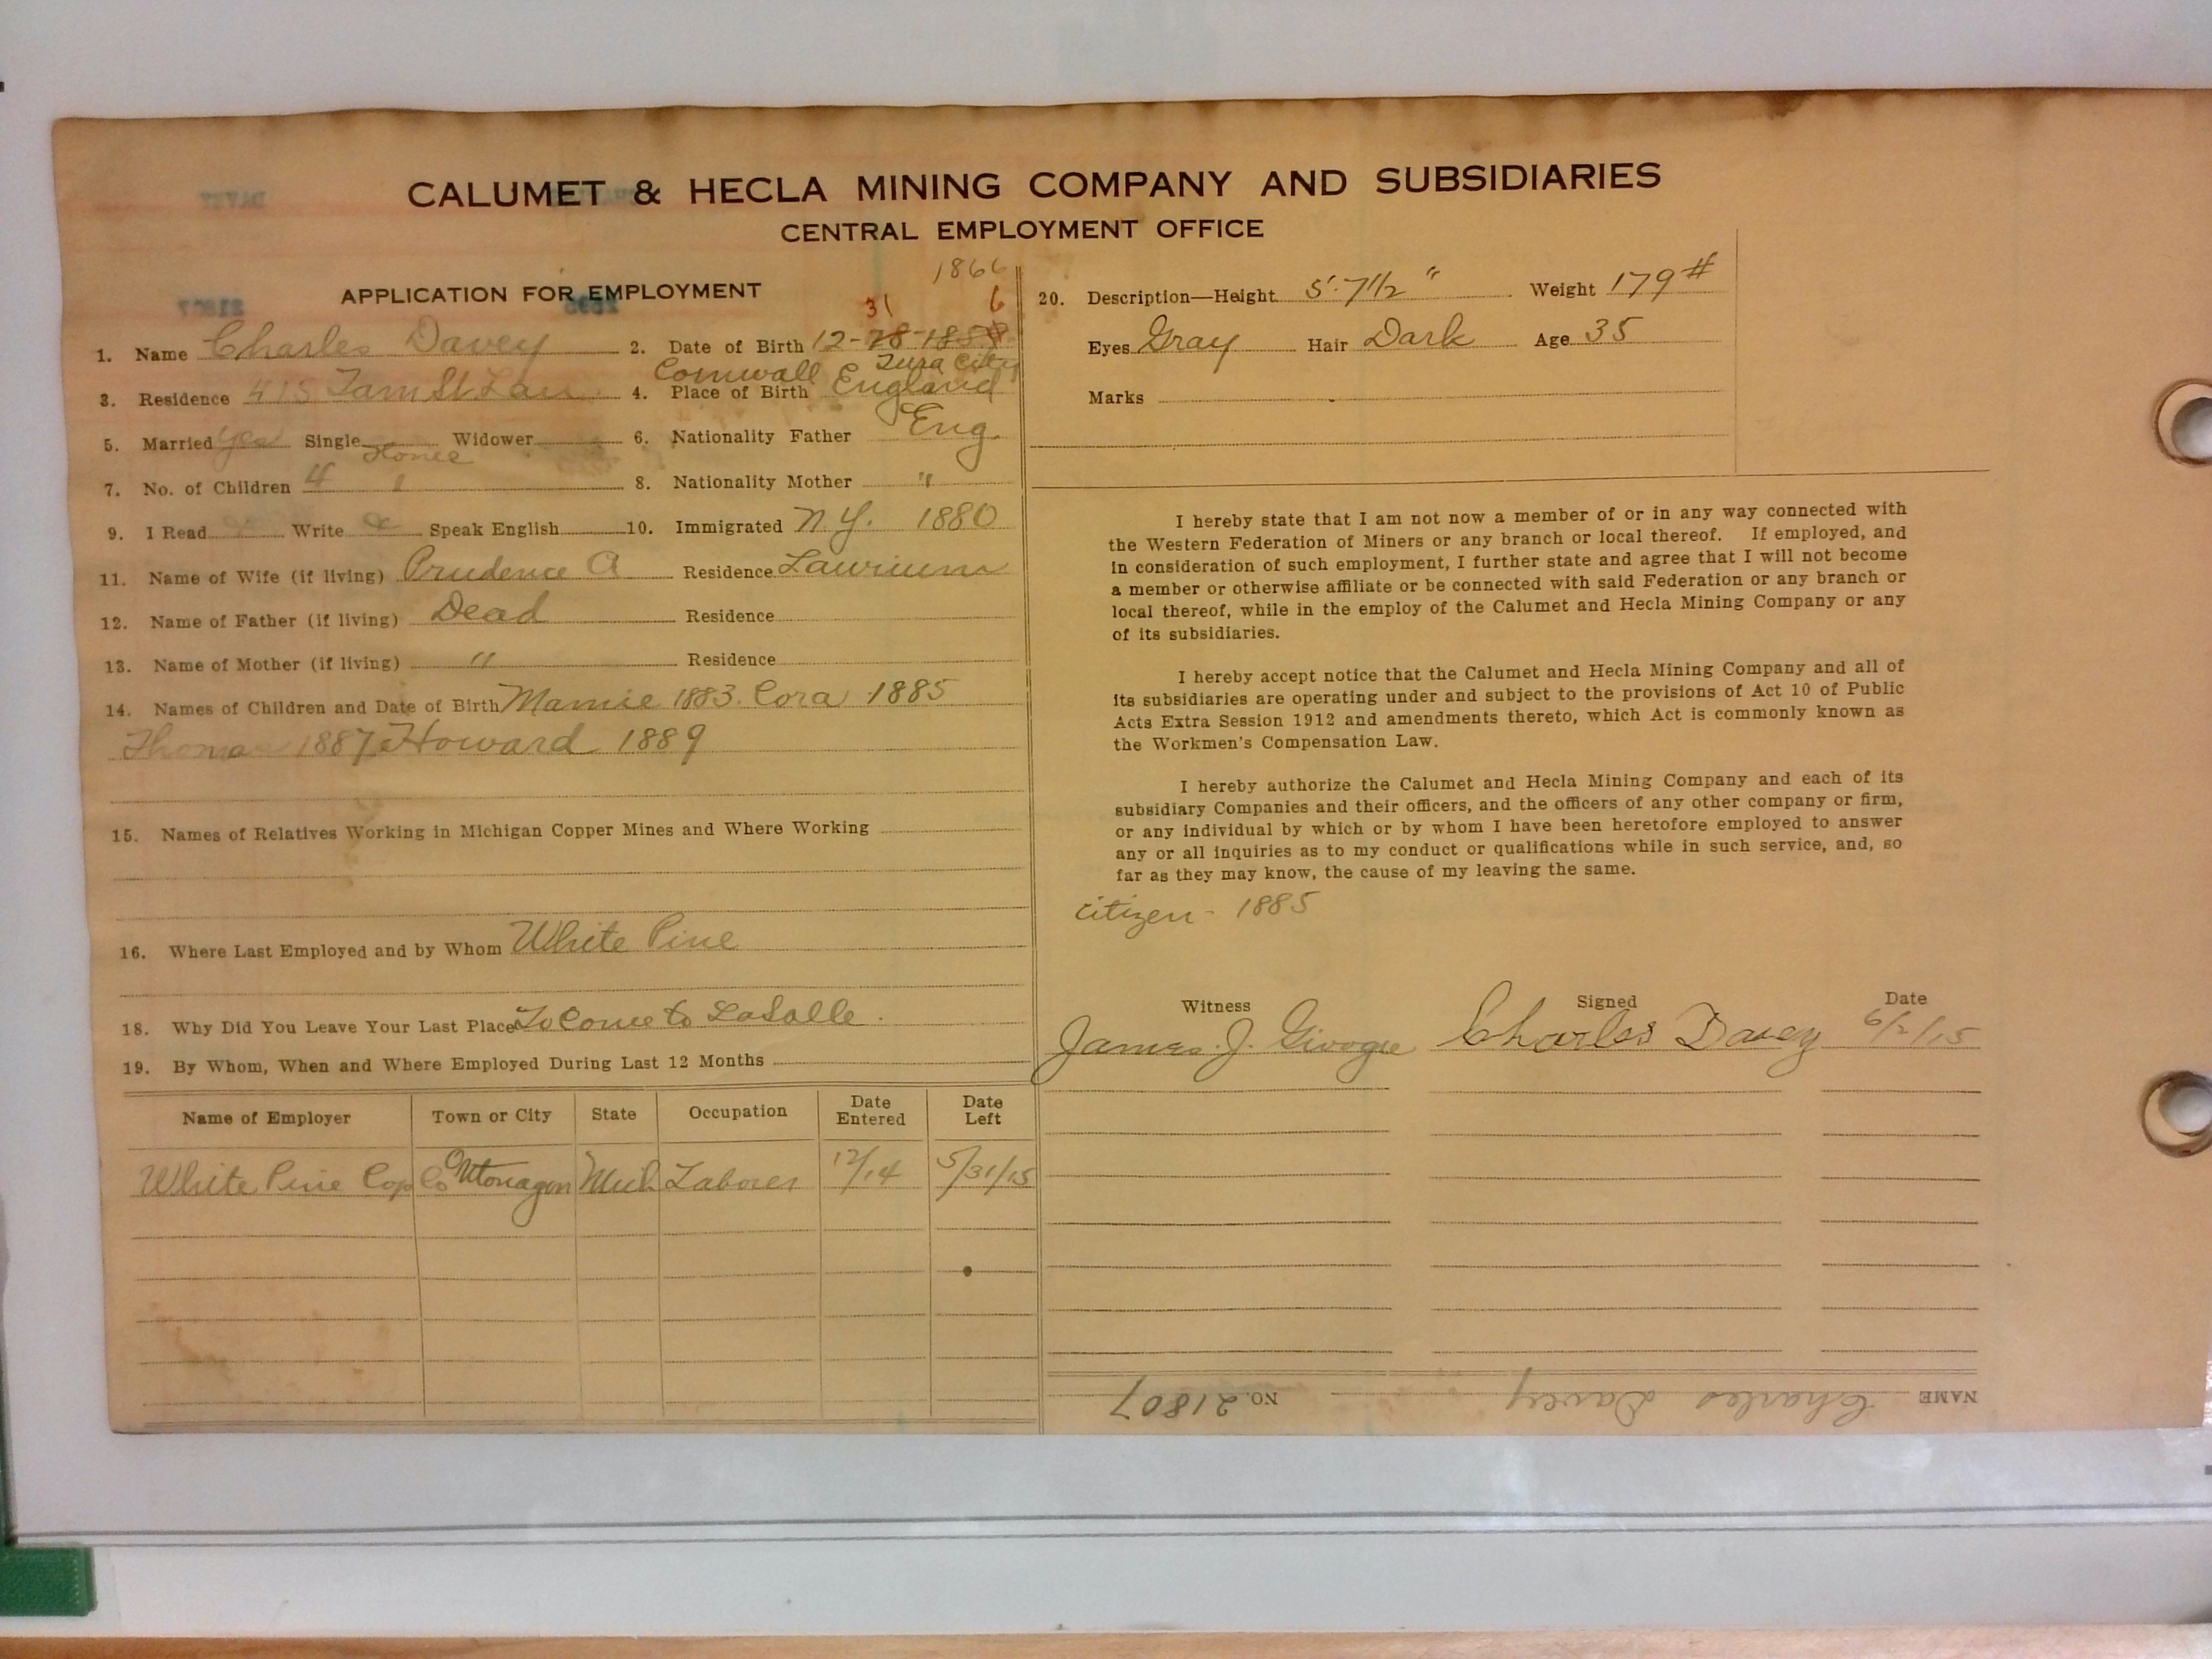 CALUMET & HECLA MINING COMPANY AND SUBSIDIARIES
CENTRAL EMPLOYMENT OFFICE
APPLICATION FOR EMPLOYMENT
1866
31 6
1. Name Charles Davey 2. Date of Birth 12-28-1858
Cornwall
3. Residence 415 Tam St Lau 4. Place of Birth England
5. Married yes Single Widower 6. Nationality Father Eng.
Home
7. No. of Children 4 1 8. Nationality Mother "
9. I Read Write Speak English 10. Immigrated N.Y. 1880
11. Name of Wife (if living) Prudence A Residence Laurium
12. Name of Father (if living) Dead Residence
13. Name of Mother (if living) " Residence
14. Names of Children and Date of Birth Mamie 1883. Cora 1885
Thomas 1887 Howard 1889
15. Names of Relatives Working in Michigan Copper Mines and Where Working
16. Where Last Employed and by Whom White Pine
18. Why Did You Leave Your Last Place To Come to LaSalle.
19. By Whom, When and Where Employed During Last 12 Months
Name of Employer Town or City State Occupation Date Entered Date Left
White Pine Cop Co Ontonagon Mich Laborer 12/14 5/31/15
20. Description—Height 5'-7 1/2" Weight 179#
Eyes Gray Hair Dark Age 35
Marks
I hereby state that I am not now a member of or in any way connected with
the Western Federation of Miners or any branch or local thereof. If employed, and
in consideration of such employment, I further state and agree that I will not become
a member or otherwise affiliate or be connected with said Federation or any branch or
local thereof, while in the employ of the Calumet and Hecla Mining Company or any
of its subsidiaries.
I hereby accept notice that the Calumet and Hecla Mining Company and all of
its subsidiaries are operating under and subject to the provisions of Act 10 of Public
Acts Extra Session 1912 and amendments thereto, which Act is commonly known as
the Workmen's Compensation Law.
I hereby authorize the Calumet and Hecla Mining Company and each of its
subsidiary Companies and their officers, and the officers of any other company or firm,
or any individual by which or by whom I have been heretofore employed to answer
any or all inquiries as to my conduct or qualifications while in such service, and, so
far as they may know, the cause of my leaving the same.
citizen - 1885
Witness Signed Date
James J. Charles Davey 6/2/15
NAME Charles Davey NO. 21807